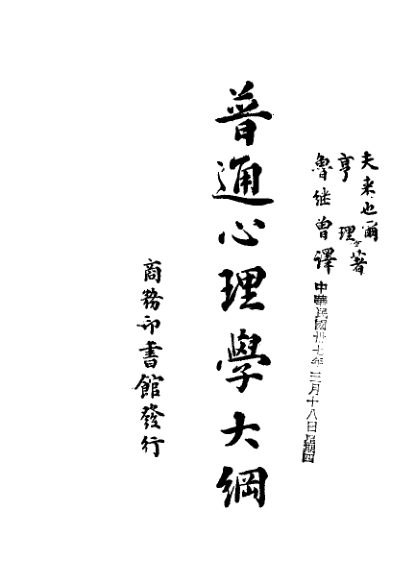 夫來也爾
亨理著
魯继曾譯
中華民國卅七年三月十八日星期四
普通心理學大綱
商務印書館發行